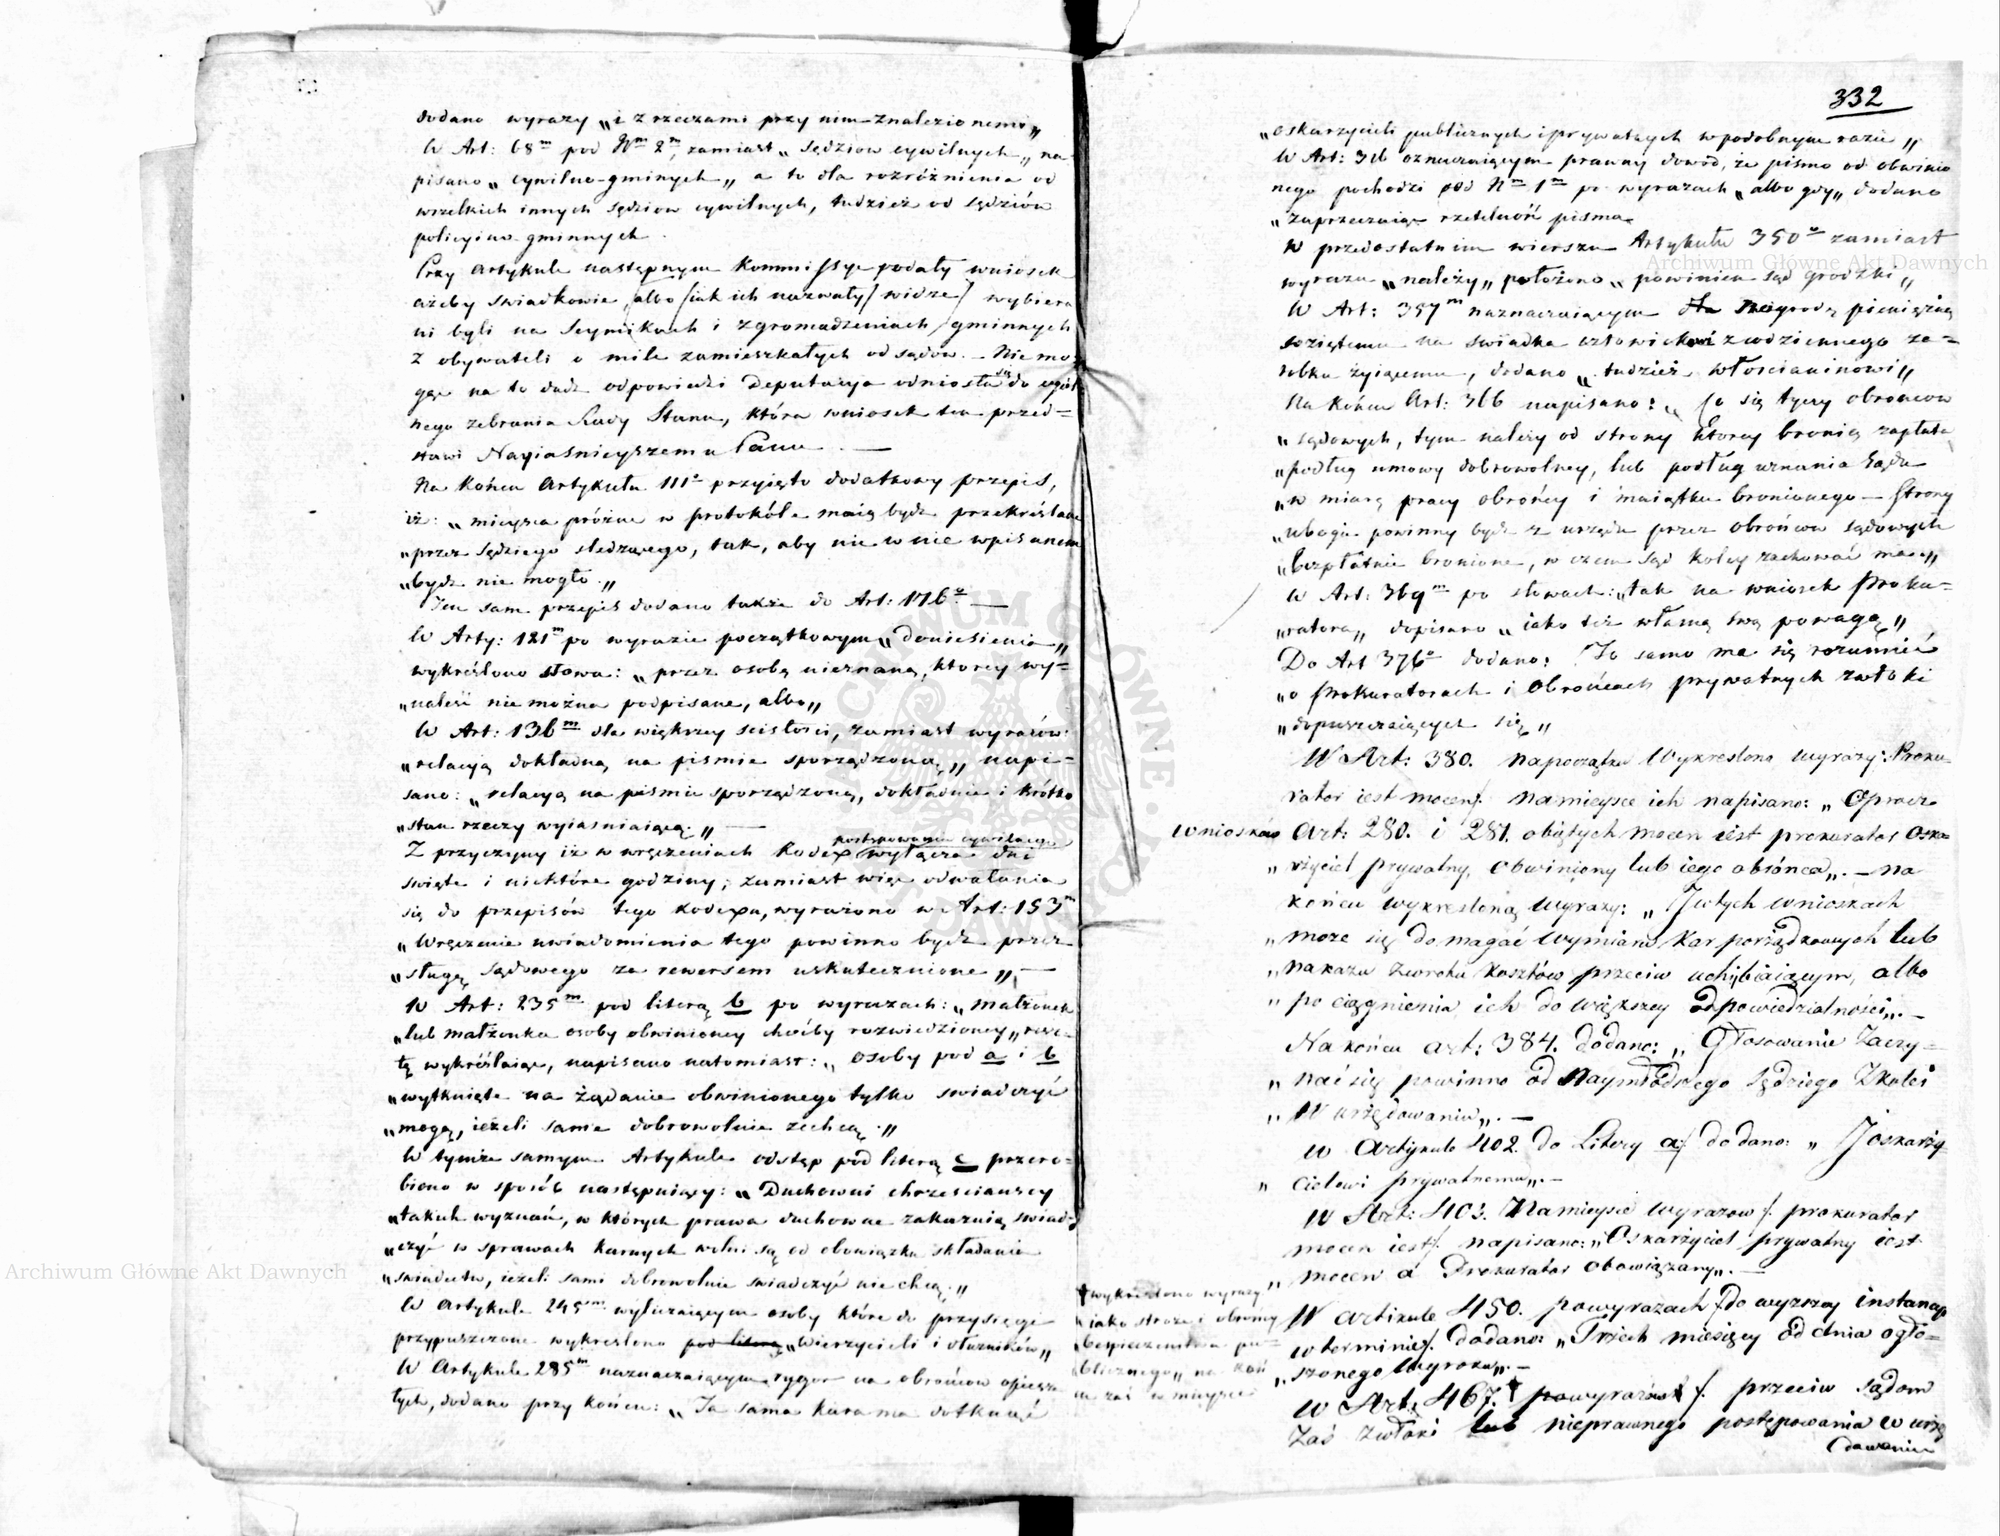 dodano wyrazy „i z rzeczami przy nim znalezionemi„
W Art: 68m pod Nm 2m, zamiast „sędziow cywilnych„ na-
pisano „cywilno-gminnych„ a to dla rozróżnienia od
wszelkich innych sędziow cywilnych, tudzież od sędziów
policyino-gminnych.
Przy Artykule następnym Kommissye podały wniosek
ażeby swiadkowie, albo /iak ich nazwały/ widze/ wybiera
ni byli na Seymikach i zgromadzeniach gminnych
z obywateli o mile zamieszkałych od sądow. – Nie mo-
gąc na to dadz odpowiedzi Deputacya odniosła się do ogól
nego zebrania Rady Stanu, która wniosek ten przed=
stawi Nayiaśnieyszemu Panu. —
Na końcu Artykułu 111o przyięto dodatkowy przepis,
iż: „mieysca próżne w protokóle maią bydz przekréślane
„przez sędziego sledzącego, tak, aby nic w nie wpisanem
„bydz nie mogło.„
Ten sam przepis dodano także do Art: 116o. —
W Arty: 121m po wyrazie początkowym „Doniesienia„
wykréślono słowa: „przez osobę nieznaną, ktorey wy=
„naleść nie można podpisane, albo„
W Art: 136m dla większey scisłości, zamiast wyrazów:
„relacyą dokładną na pismie sporządzoną„ napi=
sano: „relacyą na pismie sporządzoną, dokładnie i krótko
„stan rzeczy wyiaśniaiącą.„ —
postępowania cywilnego
Z przyczyny iż w wręczeniach Kodex wyłącza dni
święte i niektóre godziny; zamiast więc odwołania
się do przepisów tego kodexu, wyrażono w Art: 153m
„Wręczenie uwiadomienia tego powinno bydz przez
„sługę sądowego za rewersem uskutecznione„ —
W Art: 235m pod literą b po wyrazach: „Małżonek
„lub małżonka osoby obwinioney choćby rozwiedzioney„ resz-
tę wykréślaiąc, napisano natomiast: „osoby pod a i b
„wytknięte na żądanie obwinionego tylko swiadczyć
„mogą, ieżeli same dobrowolnie zechcą.„
W tymże samym Artykule odstęp pod literą c przero-
biono w sposób następuiący: „Duchowni chrześciańscy
„takich wyznań, w których prawa duchowne zakazuią swiad-
„czyć w sprawach karnych wolni są od obowiązku składania
„swiadectw, ieżeli sami dobrowolnie swiadczyć nie chcą.„
W Artykule 245m wyliczaiącym osoby które do przysięgi
przypuszczone wykreślono pod literą „Wierzycieli i dłużników„
W Artykule 285m naznaczaiącym rygor na obrońcow opiesza
łych, dodano przy końcu: „Ta sama kara ma dotknąć
332
„oskarzycieli publicznych i prywatnych w podobnym razie„
W Art: 326 oznaczaiącym prawny dowód, że pismo od obwinio
nego pochodzi pod Nm 1m po wyrazach „albo gdy„ dodano
„zaprzeczaiąc rzetelność pisma„
W przedostatnim wierszu Artykułu 350o zamiast
wyrazu „należy„ położono „powinien sąd grodzki„
W Art: 357m naznaczaiącym nagrodę pieniężną
wziętemu na świadka człowiekowi z codziennego za=
robku żyiącemu, dodano „tudzież włościaninowi„
Na końcu Art: 366 napisano: „Co się tyczy obrońcow
„sądowych, tym należy od strony ktorey bronią zapłata
„podług umowy dobrowolney, lub podług uznania Sądu
„w miarę pracy obrońcy i maiątku bronionego – Strony
„ubogie powinny bydz z urzędu przez obrońcow sądowych
„bezpłatnie bronione, w czem sąd koley zachować ma„
W Art: 369m po słowach: „tak na wniosek Proku=
„ratora„ dopisano „iako też własną swą powagą„
Do Art 376o dodano: „To samo ma się rozumieć
„o Prokuratorach i Obrońcach prywatnych zwłoki
„dopuszczaiących się„
W Art: 380. na początku wykreślono wyrazy: Proku
rator iest mocen/. na mieysce ich napisano: „Oprocz
wniosków Art: 280. i 281. obiętych mocen iest prokurator oska
„rżyciel prywatny, obwiniony lub iego obrónca„. – na
końcu wykreśloną wyrazy: „J w tych wnioskach
„może się domagać wymiaru kar porządkowych lub
„nakazu zwrotu kosztów przeciw uchybiaiącym, albo
„pociągnienia ich do większey odpowiedzialności„. –
Na końcu art: 384. dodano: „Głosowanie zaczy=
„nać się powinno od Naymłodszego Sędziego z kolei
„w urzędowaniu„. –
w Artykule 402. do Litery a/ dodano: „J oskarży
„cielowi prywatnemu„. –
W Art: 403. Na mieysce wyrazow /. prokurator
mocen iest/. napisano: „Oskarżyciel prywatny iest
„mocen a Prokurator obowiązany„. –
W artikule 450. po wyrazach /.do wyzszey instancyi
w terminie/. dodano: „Trzech miesięcy od dnia ogło=
„szonego wyroku„. –
† wykreślono wyrazy
„iako straże i obrońcy
bezpieczeństwa pu=
blicznego„ na koń
cu zaś w mieysce
w Art: 467. † po wyrazach /. przeciw sądom
zaś zwłoki lub nieprawnego postępowania w urzę
dowaniu
Archiwum Główne Akt Dawnych
Archiwum Główne Akt Dawnych